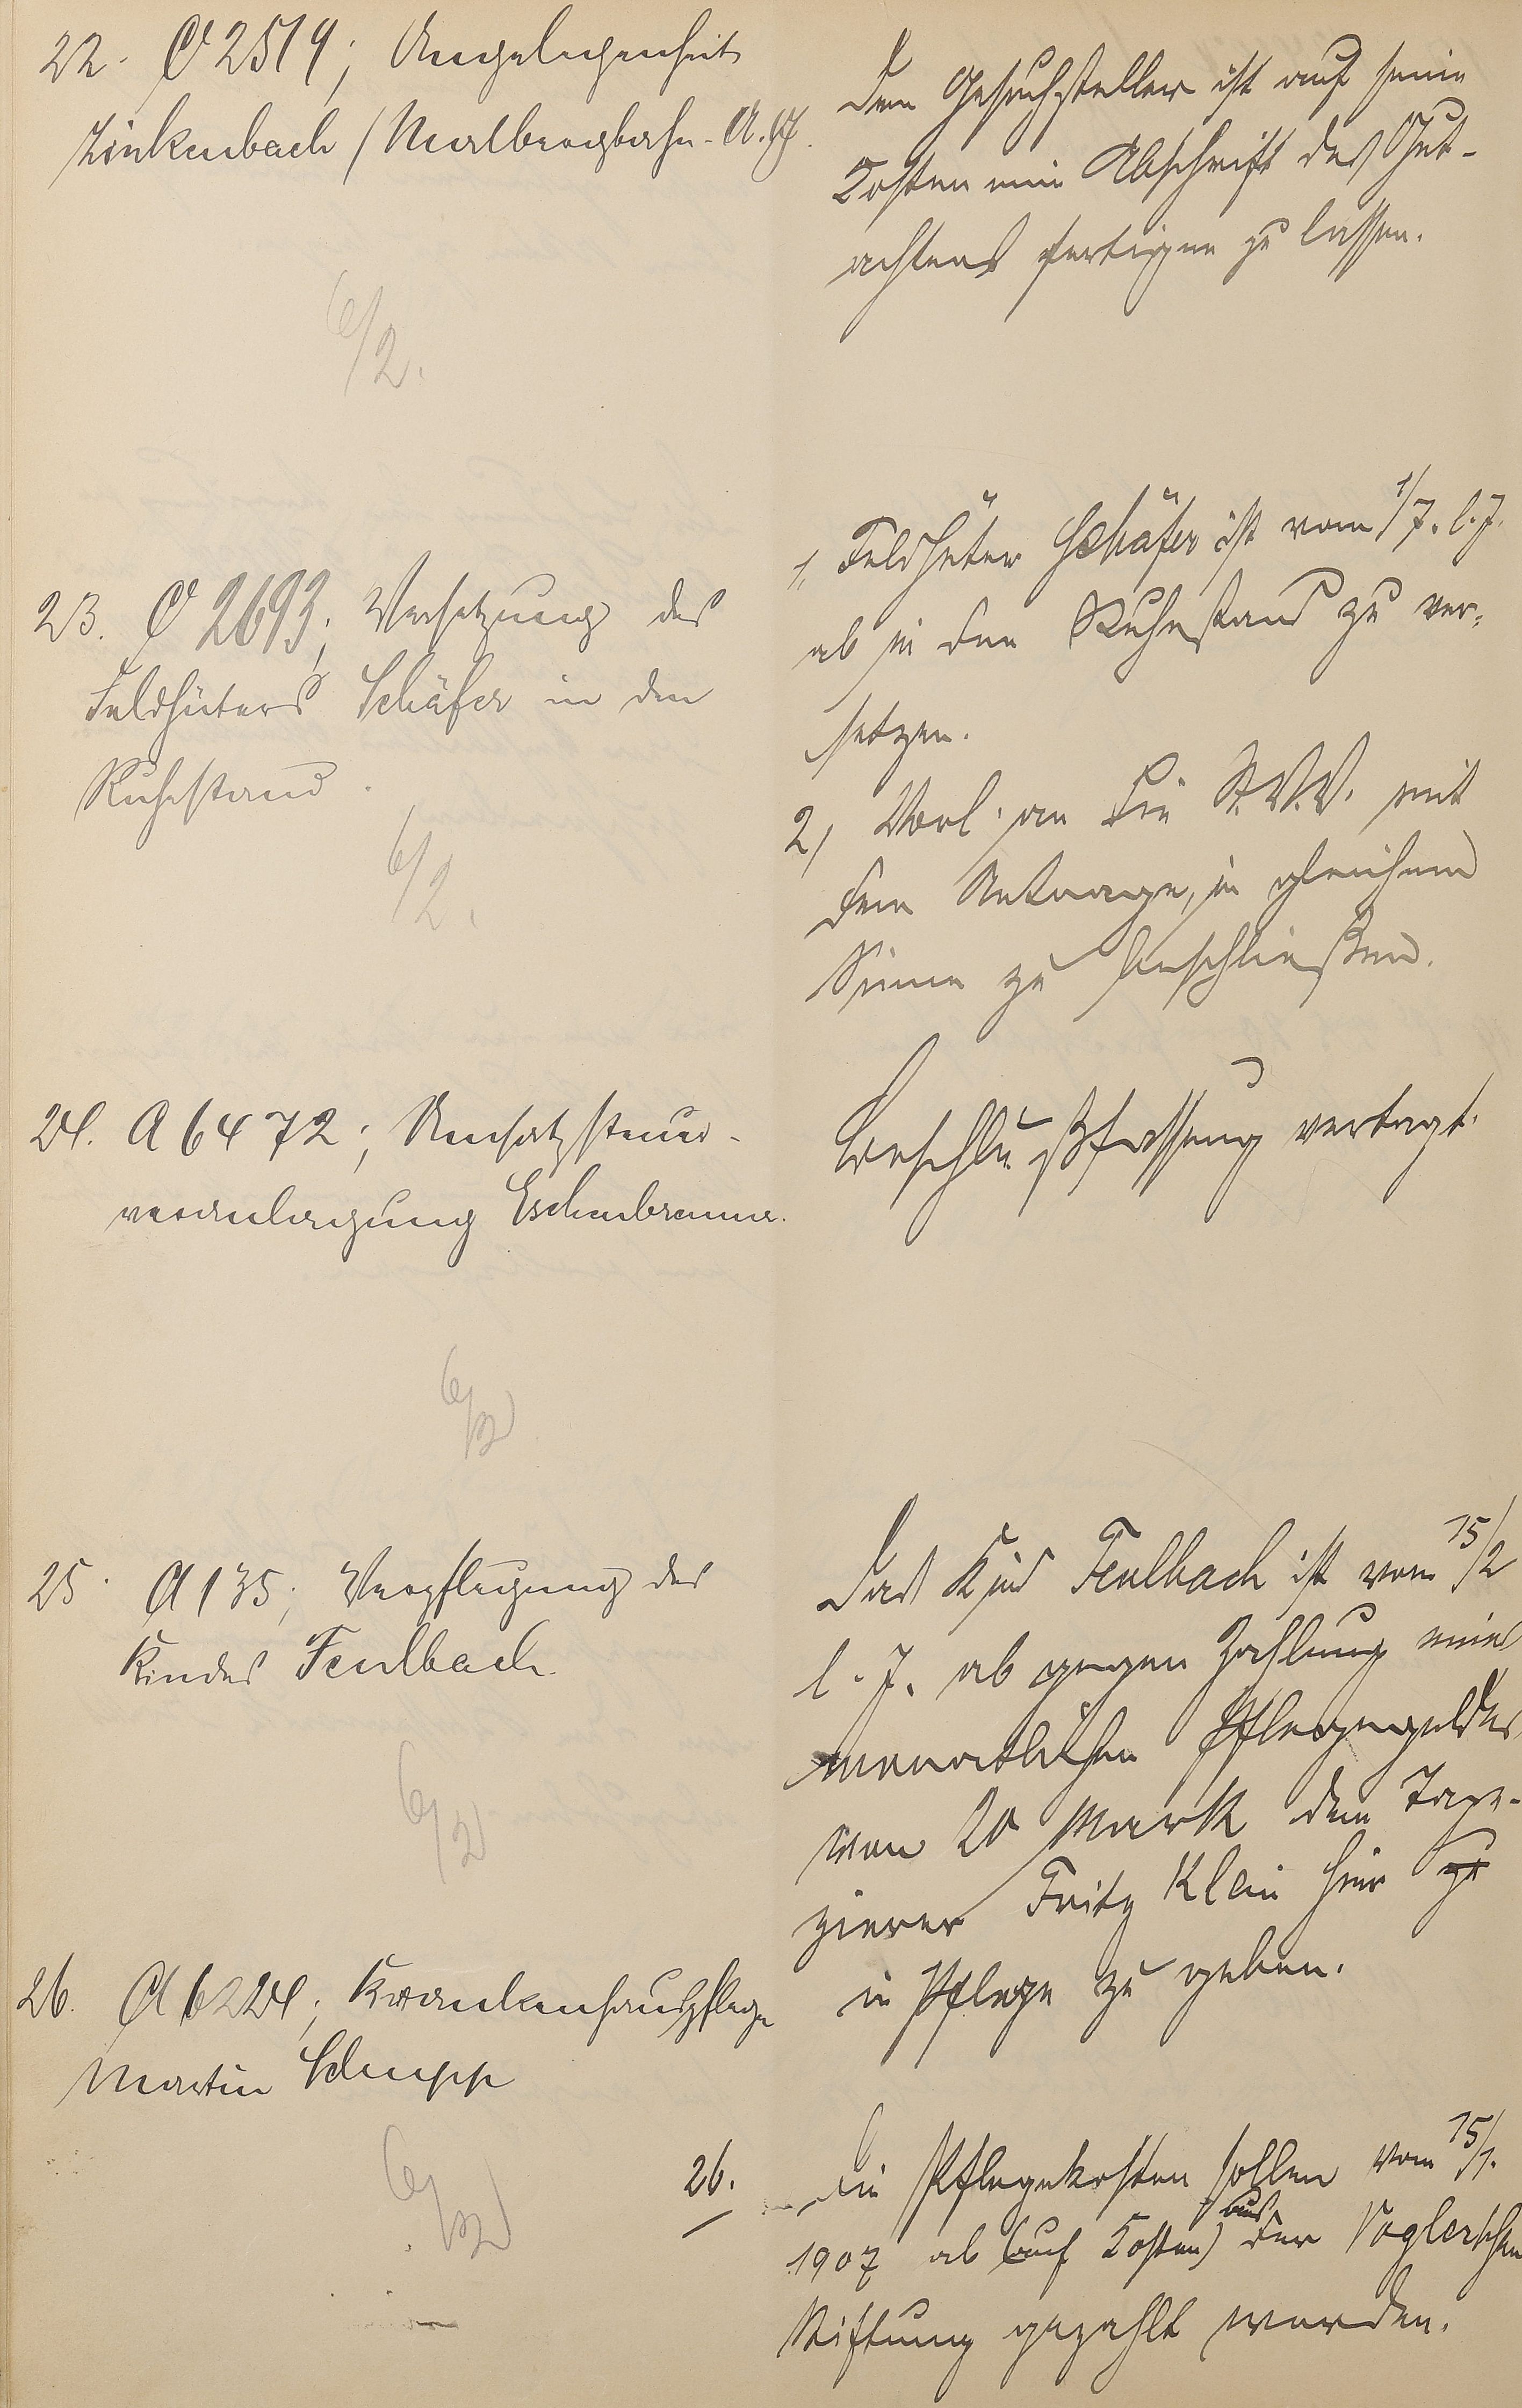 22. C 2519; Angelegenheit
Zinkenbach / Malbergbahn-A.G.
6/2.
Dem Gesuchsteller ist auf seine
Kosten eine Abschrift des Gut-
achtens fertigen zu lassen.
23. C 2693; Versetzung des
Feldhüters Schäfer in den
Ruhestand.
6/2.
1, Feldhüter Schäfer ist vom 1/7. l. J.
ab in den Ruhestand zu ver-
setzen.
2, Vorl. an die St.V.V. mit
dem Antrage, in gleichem
Sinne zu beschließen.
24. A 6472; Umsatzsteuer-
veranlagung Eschenbrenner.
6/2
Beschlußfassung vertagt.
25. A 135; Verpflegung des
Kindes Feulbach
6/2
Das Kind Feulbach ist vom 15/2
l. J. ab gegen Zahlung eines
monatlichen Pflegegeldes
von 20 Mark dem Tape-
zierer Fritz Klein hier zu
in Pflege zu geben.
26. A 6224; Krankenhauspflege
Martin Schupp
6/2
26. Die Pflegekosten sollen vom 15/1.
1907 ab (auf Kosten) aus der Voglerschen
Stiftung gezahlt werden.